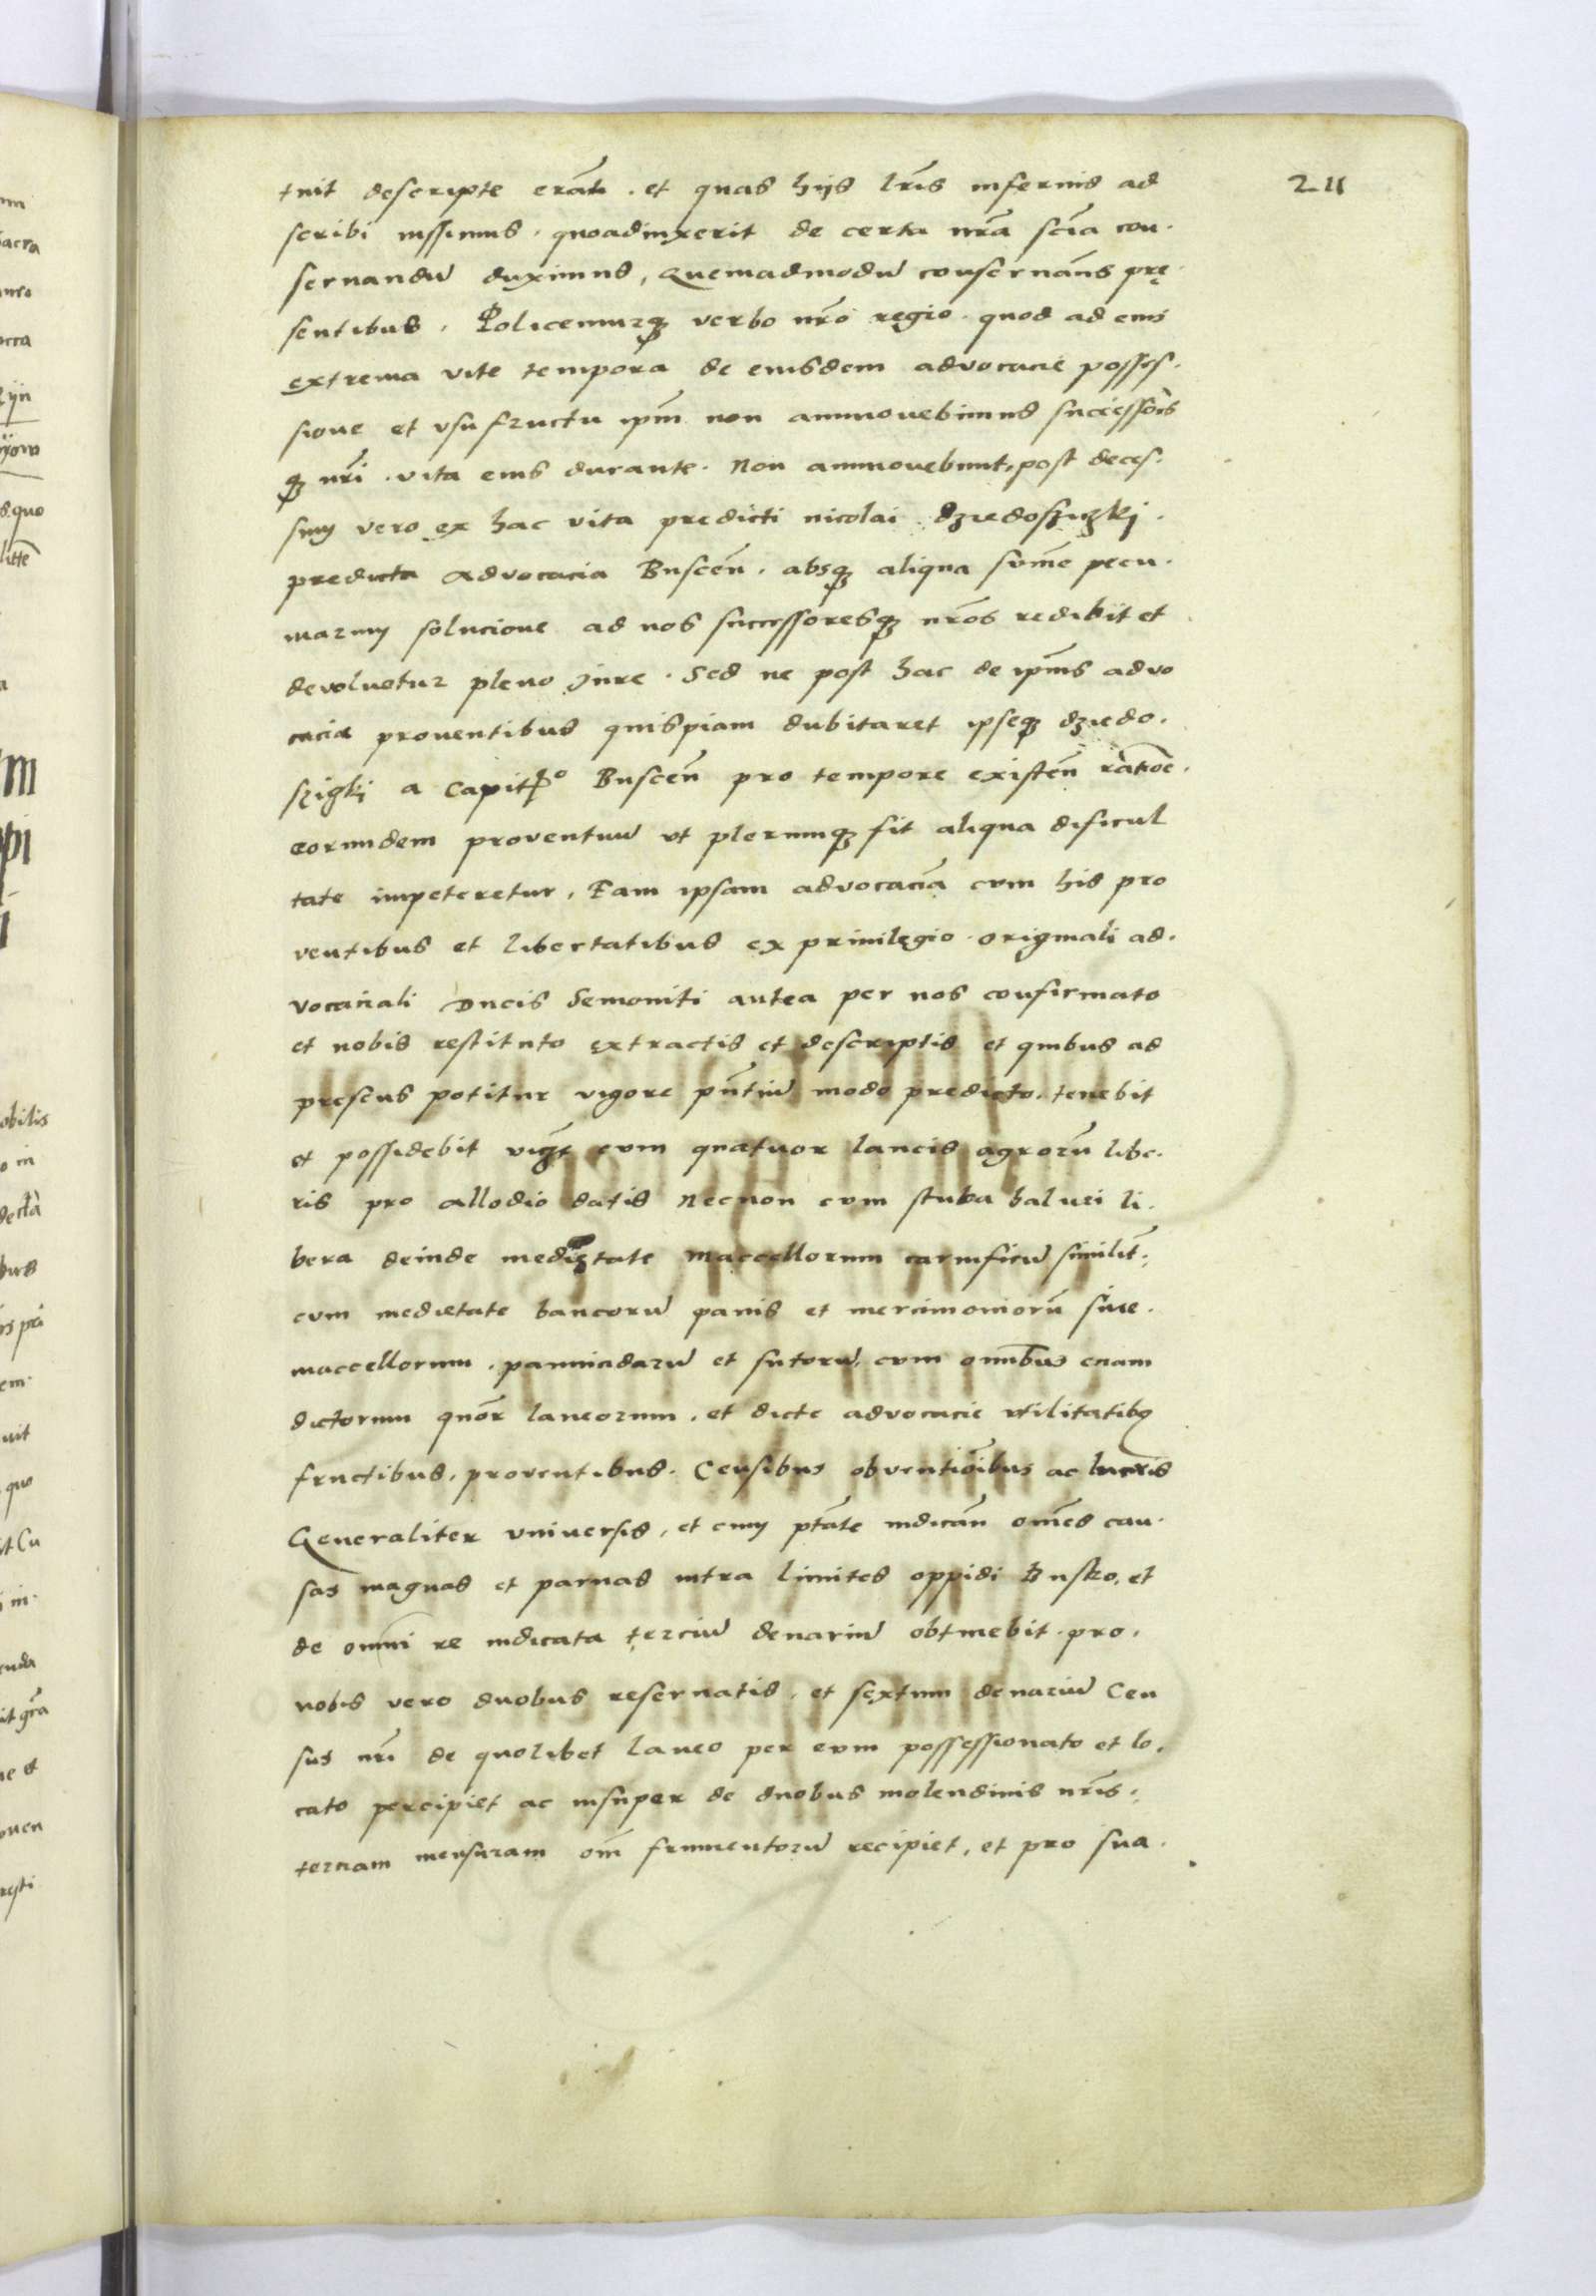 211
tuit descripte erãt . et quas hijs lr̃is inferius ad
scribi iussimus . quoadiuxerit de certa nr̃a sciã con.
seruandũ duximus , Quemadmodũ conseruam̃s prę.
sentibus . Policemurq3 verbo nr̃o regio . quod ad eius
extrema vite tempora de eiusdem advocacie posses.
sione et vsufructu ip̃m non ammouebimus successor̃s
q3 nr̃i . vita eius durante . Non ammouebunt, post deces.
sum vero ex hac vita predicti nicolai dziedoszizkj .
predicta advocacia Buscen̄ . absq3 aliqua sum̃e pecu.
niarum solucione ad nos successoresq3 nr̃os redibit et
devoluetur pleno Jure . Sed ne post hac de ip̃ius advo
cacie proventibus quispiam dubitaret ipseq3 dziedo.
szigkj a Capitº Buscen̄ pro tempore existen̄ ratiõe .
eorundem proventuũ vt plerumq3 fit aliqua dificul
tate impeteretur , Eam ipsam advocaciã cum his pro
ventibus et libertatibus ex priuilegio originali ad.
vocaciali Ducis Semoniti antea per nos confirmato
et nobis restituto extractis et descriptis et quibus ad
presens potitur vigore pñtiũ modo predicto . tenebit
et possidebit vigt̃ cum quatuor laneis agrorũ libe.
ris pro allodio datis Necnon cum stuba balnei li.
bera deinde medietate maccellorum carnificũ similit̃ ,
cum medietate bancorũ panis et mercimoniorũ siue .
maccellorum . pannicidarũ et sutorũ, cum omnibus eciam
dictorum quõr laneorum . et dicte advocacie vtilitatibꝫ
fructibus , proventibus . Censibus obventiõibus ac lucris
Generaliter vniuersis , et cum ptãte iudicañ oms̃ cau.
sas magnas et paruas intra limites oppidi Busko, et
de omni re iudicata terciũ denariũ obtinebit . pro .
nobis vero duobus reseruatis , et sextum denariũ Cen
sus nr̃i de quolibet laneo per eum possessionato et lo.
cato percipiet ac insuper de duobus molendinis nr̃is .
terciam mensuram om̃ frumentorũ recipiet , et pro sua .